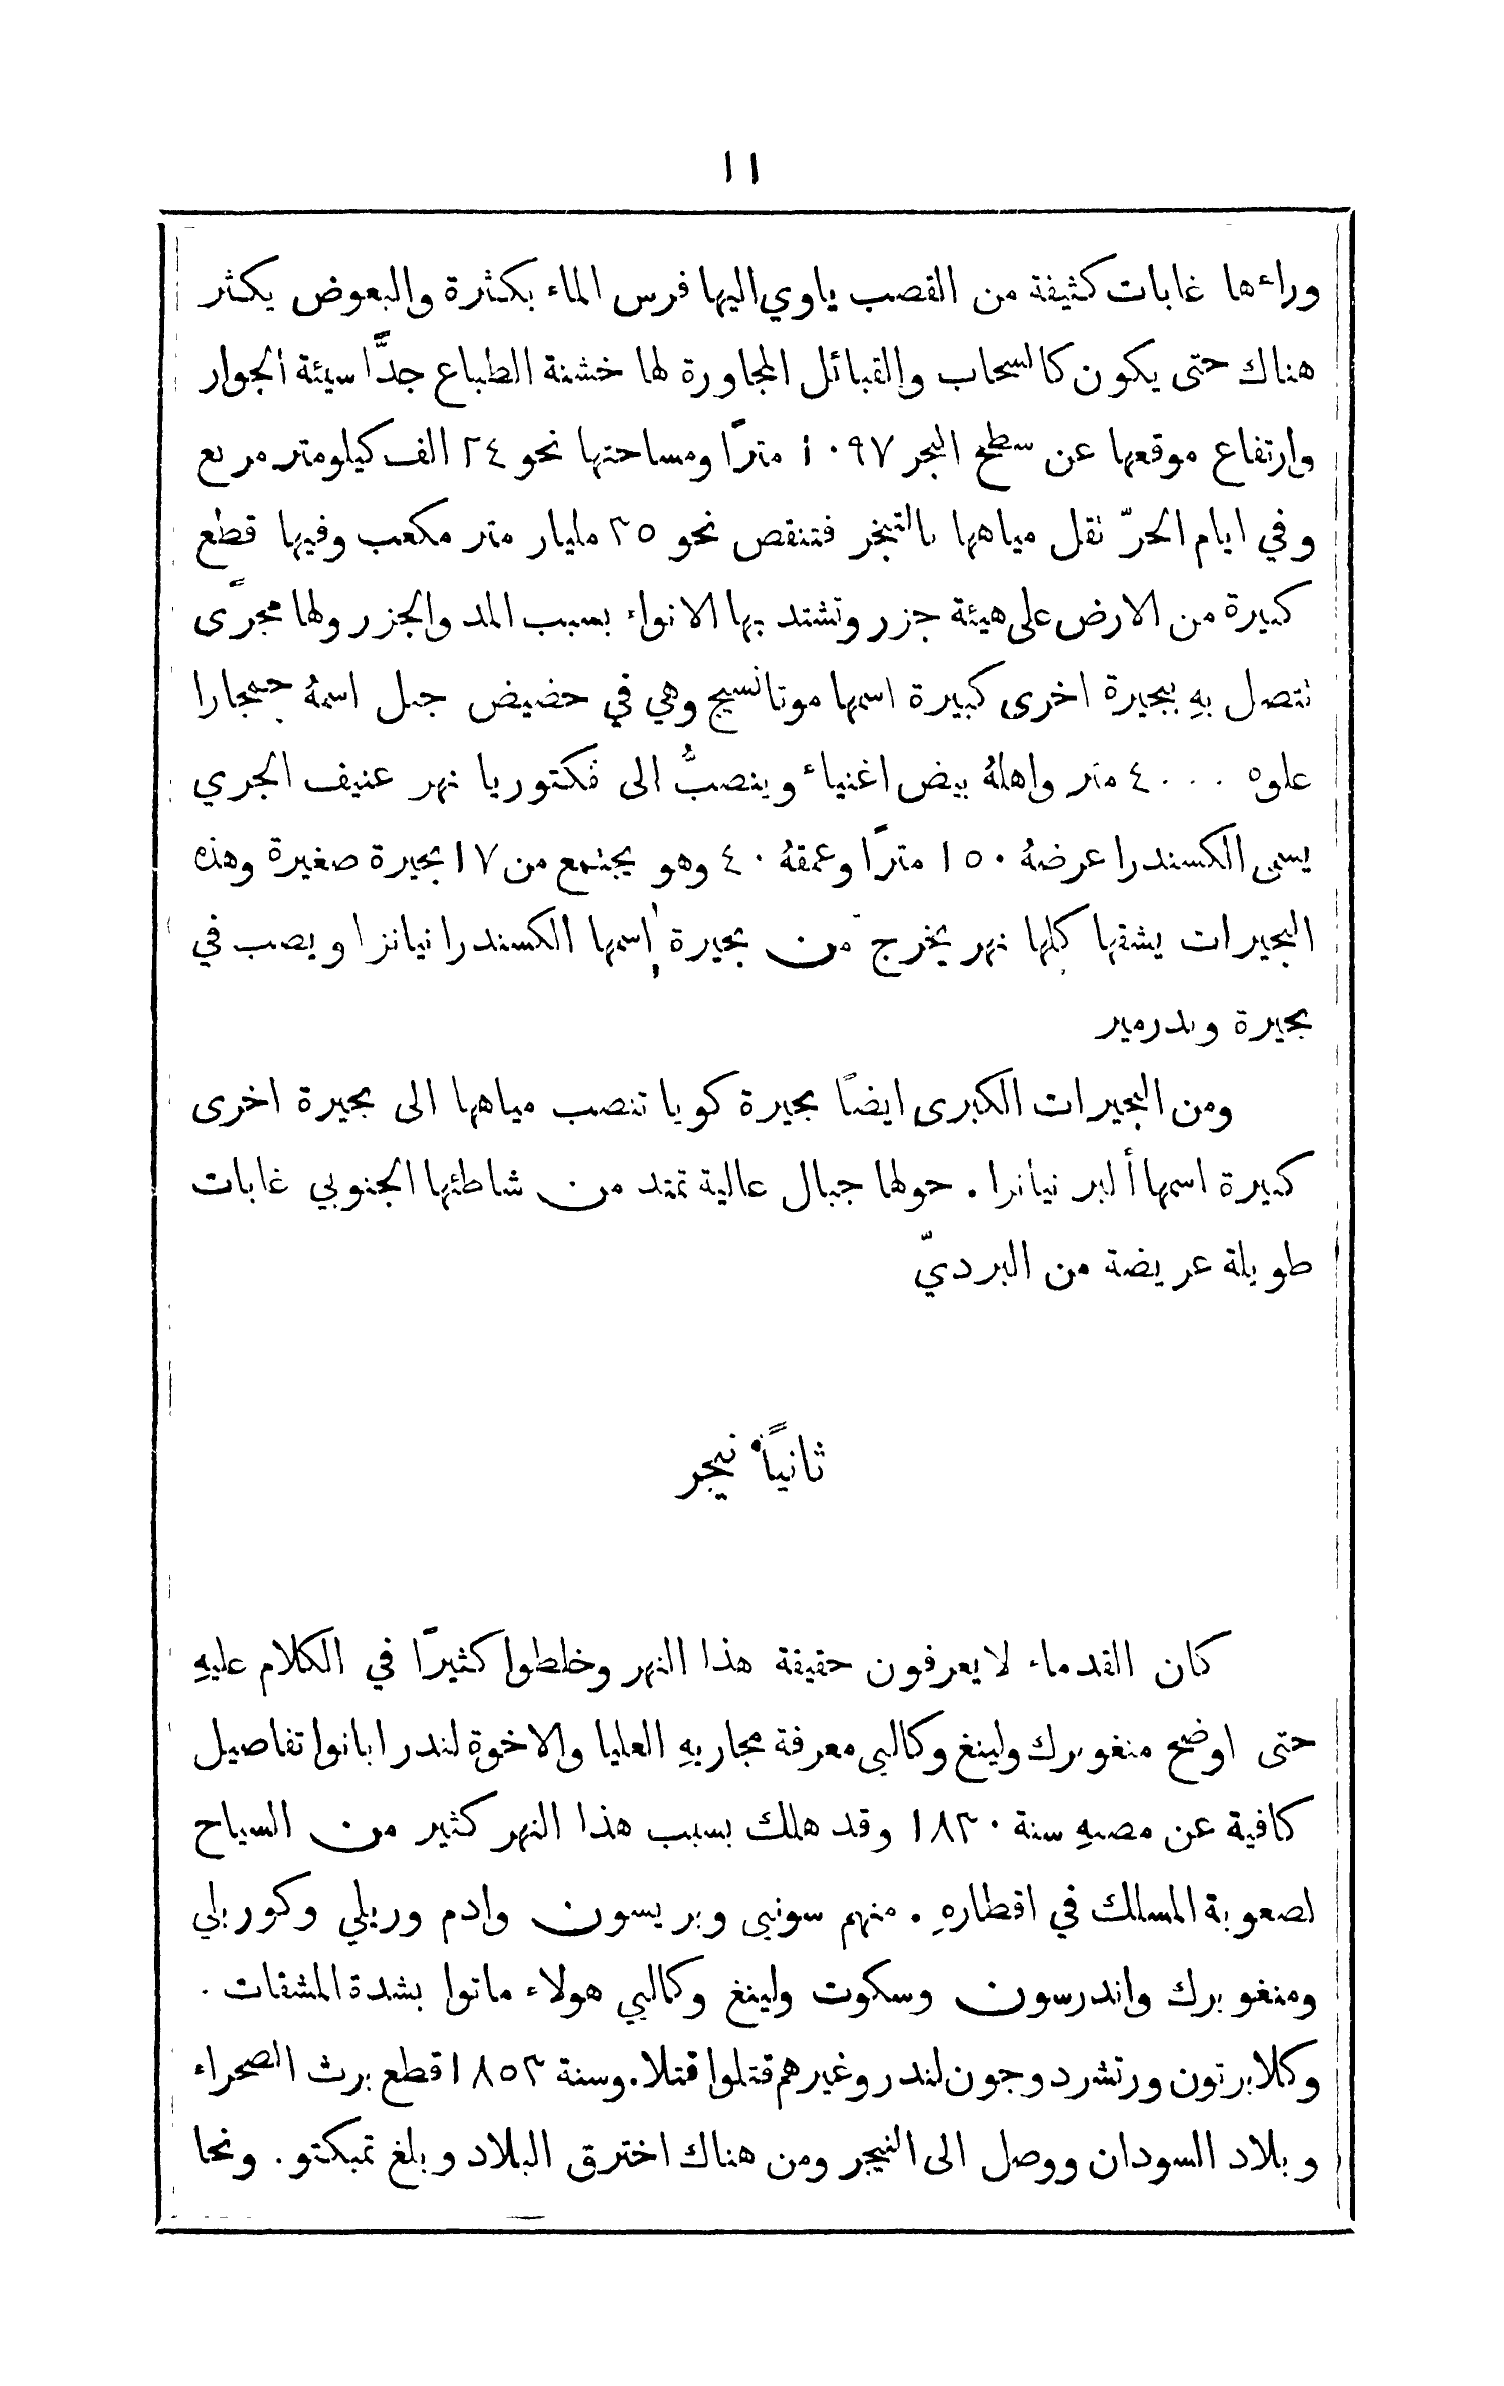 ١١
وراءها غابات كثيفة من القصب ياوي اليها فرس الماء بكثرة والبعوض يكثر
هناك حتى يكون كالسحاب والقبائل المجاورة لها خشنة الطباع جدًّا سيئة الجوار
وارتفاع موقعها عن سطح البحر ١٠٩٧ مترًا ومساحتها نحو ٢٤ الف كيلومتر مربع
وفي ايام الحرّ تقل مياهها بالتبخر فتنقص نحو ٢٥ مليار متر مكعب وفيها قطع
كبيرة من الارض على هيئة جزر وتشتد بها الانواء بسبب المد والجزر ولها مجرًى
تتصل بهِ ببحيرة اخرى كبيرة اسمها موتانسيج وهي في حضيض جبل اسمهُ
علوه ٤٠٠٠ متر واهلهُ بيض اغنياء وينصبُّ الى ڤكتوريا نهر عنيف الجري
يسمى الكسندرا عرضهُ ١٥٠ مترًا وعمقهُ ٤٠ وهو يجتمع من ١٧ بحيرة صغيرة وهذه
البحيرات يشقها كلها نهر يخرج من بحيرة اسمها الكسندرا نيانزا ويصب في
بحيرة وندرمير
ومن البحيرات الكبرى ايضًا بحيرة كويا تنصب مياهها الى بحيرة اخرى
كبيرة اسمها ألبر نيانزا . حولها جبال عالية تمتد من شاطئها الجنوبي غابات
طويلة عريضة من البرديّ
ثانيًا نيجر
كان القدماء لا يعرفون حقيقة هذا النهر وخلطوا كثيرًا في الكلام عليهِ
حتى اوضح منغوبرك ولينغ وكاليى معرفة مجاريهِ العليا والاخوة لندر ابانوا تفاصيل
كافية عن مصبهِ سنة ١٨٣٠ وقد هلك بسبب هذا النهر كثير من السياح
لصعوبة المسالك في اقطارهِ . منهم سونيى وبريسون وادم وريلي وكوربلي
ومنغوبرك واندرسون وسكوت ولينغ وكاليي هولاء ماتوا بشدة المشقات .
وكلابرتون ورتشرد وجون لندر وغيرهم قتلوا قتلا . وسنة ١٨٥٣ قطع برث الصحراء
وبلاد السودان ووصل الى النيجر ومن هناك اخترق البلاد وبلغ تمبكتو . ونحا